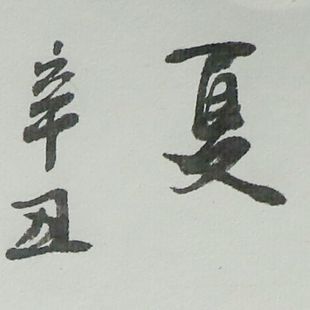 夏
辛丑